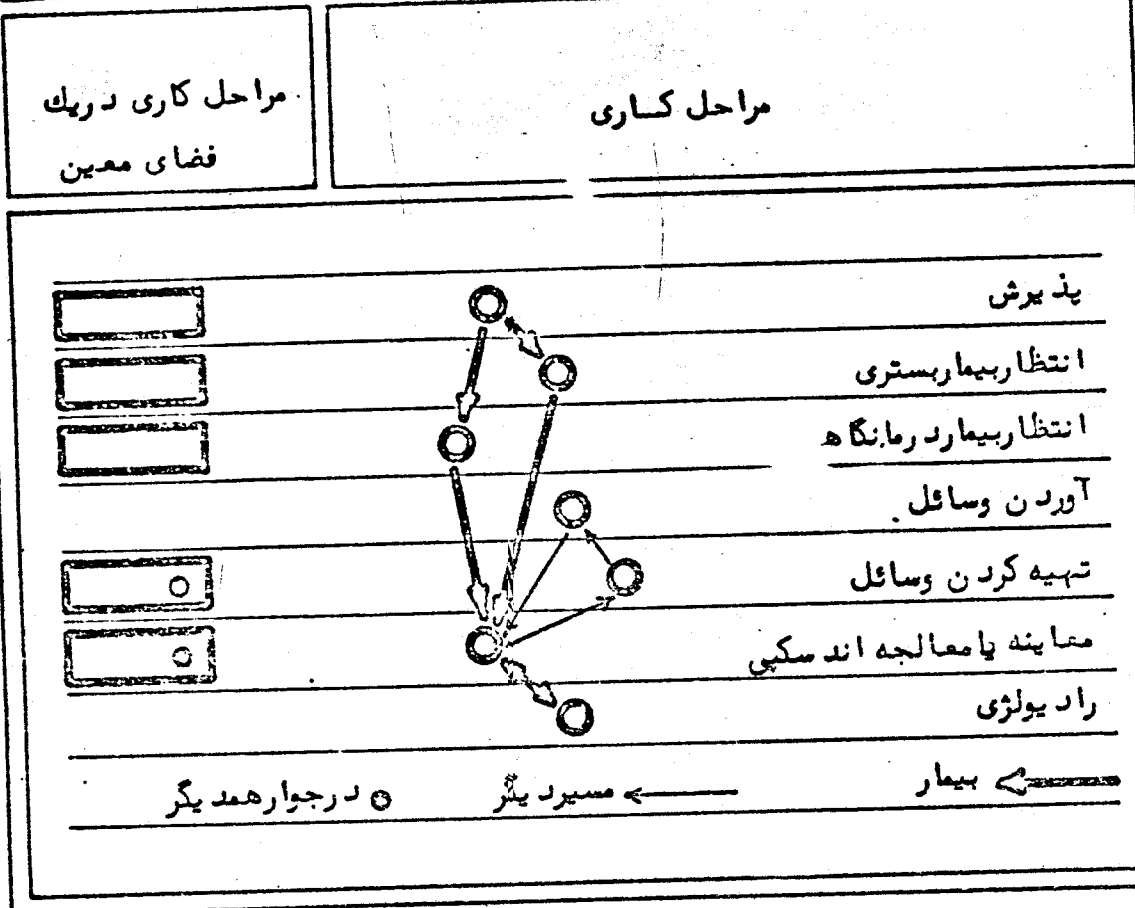 مراحل کاری
مراحل کاری دریك
فضای معین
پذیرش
انتظاربیماربستری
انتظاربیماردرمانگاه
آوردن وسائل
تهیه کردن وسائل
معاینه یامعالجه اندسکپی
رادیولژی
بیمار
مسیردیگر
درجوارهمدیگر